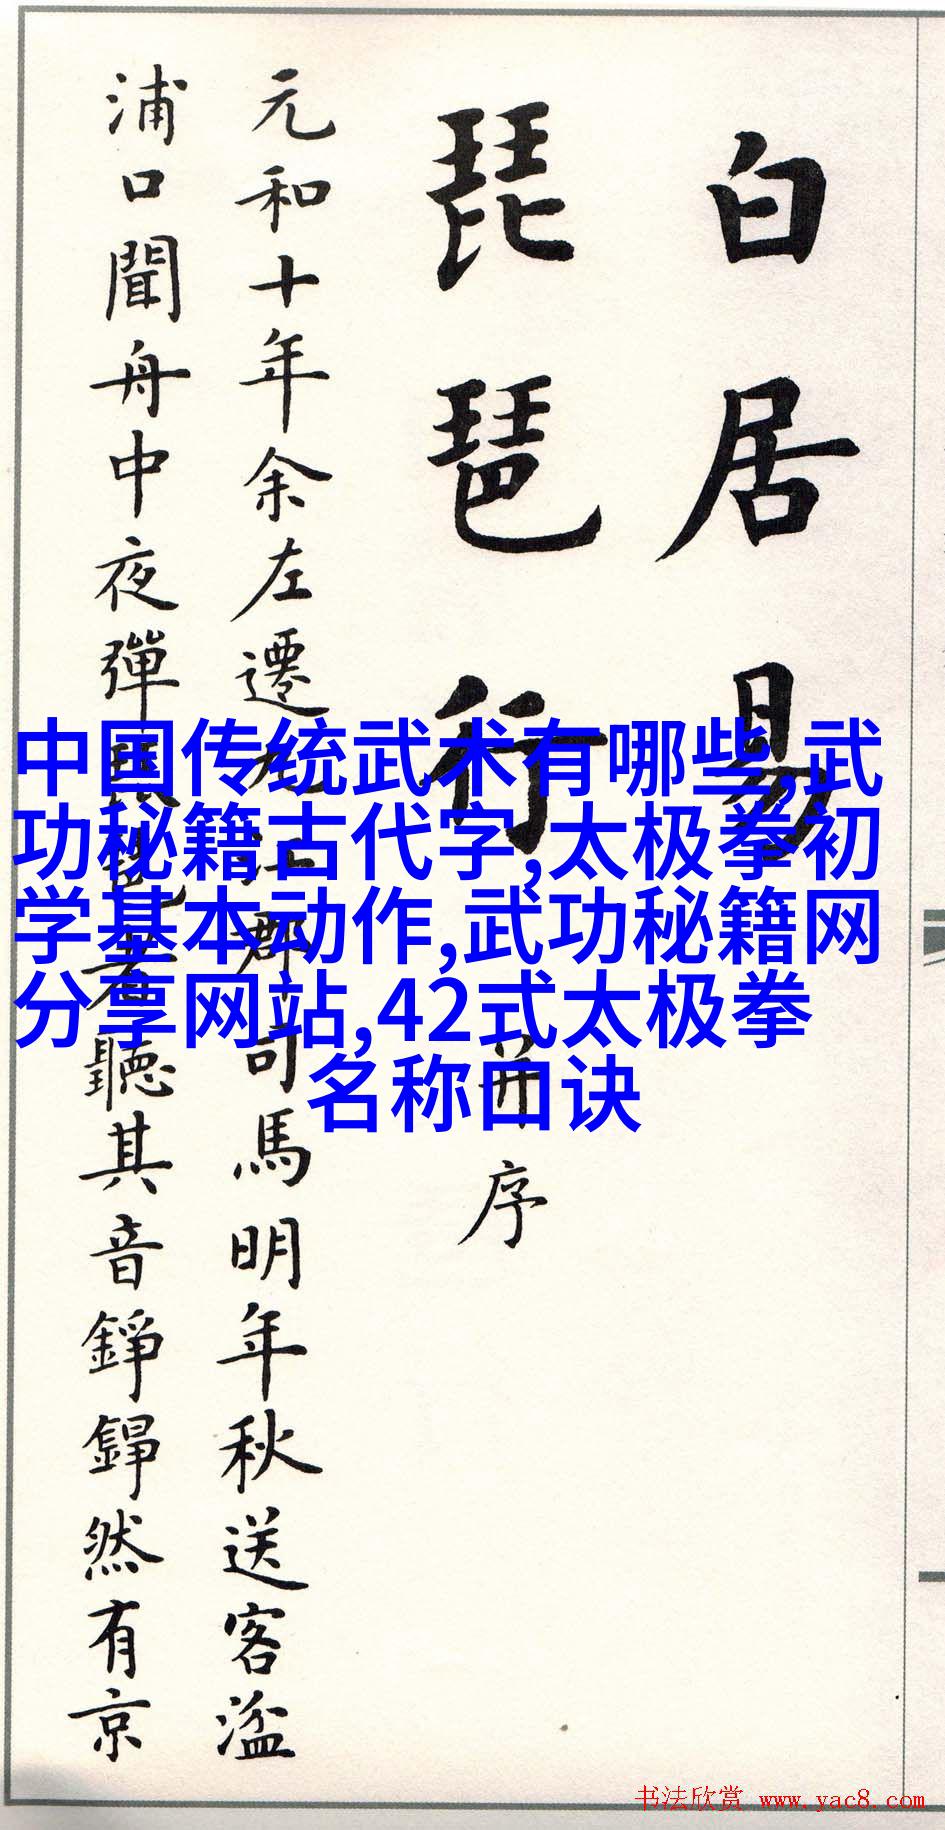 白居易
琵琶行并序
元和十年余左遷九江郡司馬明年秋送客湓
浦口聞舟中夜彈琵琶者聽其音錚錚然有京
中国传统武术有哪些,武
功秘籍古代字,太极拳初
学基本动作,武功秘籍网
分享网站,42式太极拳
名称口诀
书法欣赏 www.yac8.com